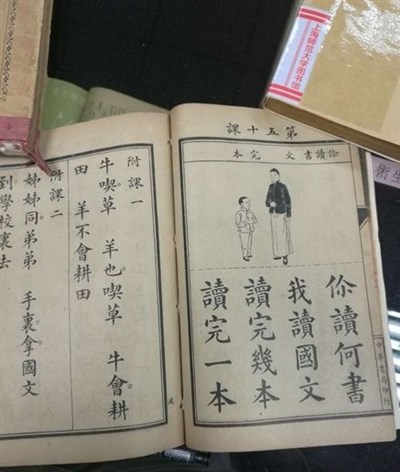 上海师范大学图书馆
第五十課
你讀書文 完本
你讀何書
我讀國文
讀完幾本
讀完一本
中華書局印行
附課一
牛喫草 羊也喫草 牛會耕
田 羊不會耕田
附課二
姊姊同弟弟 手裏拿國文
到學校裏去
衛生